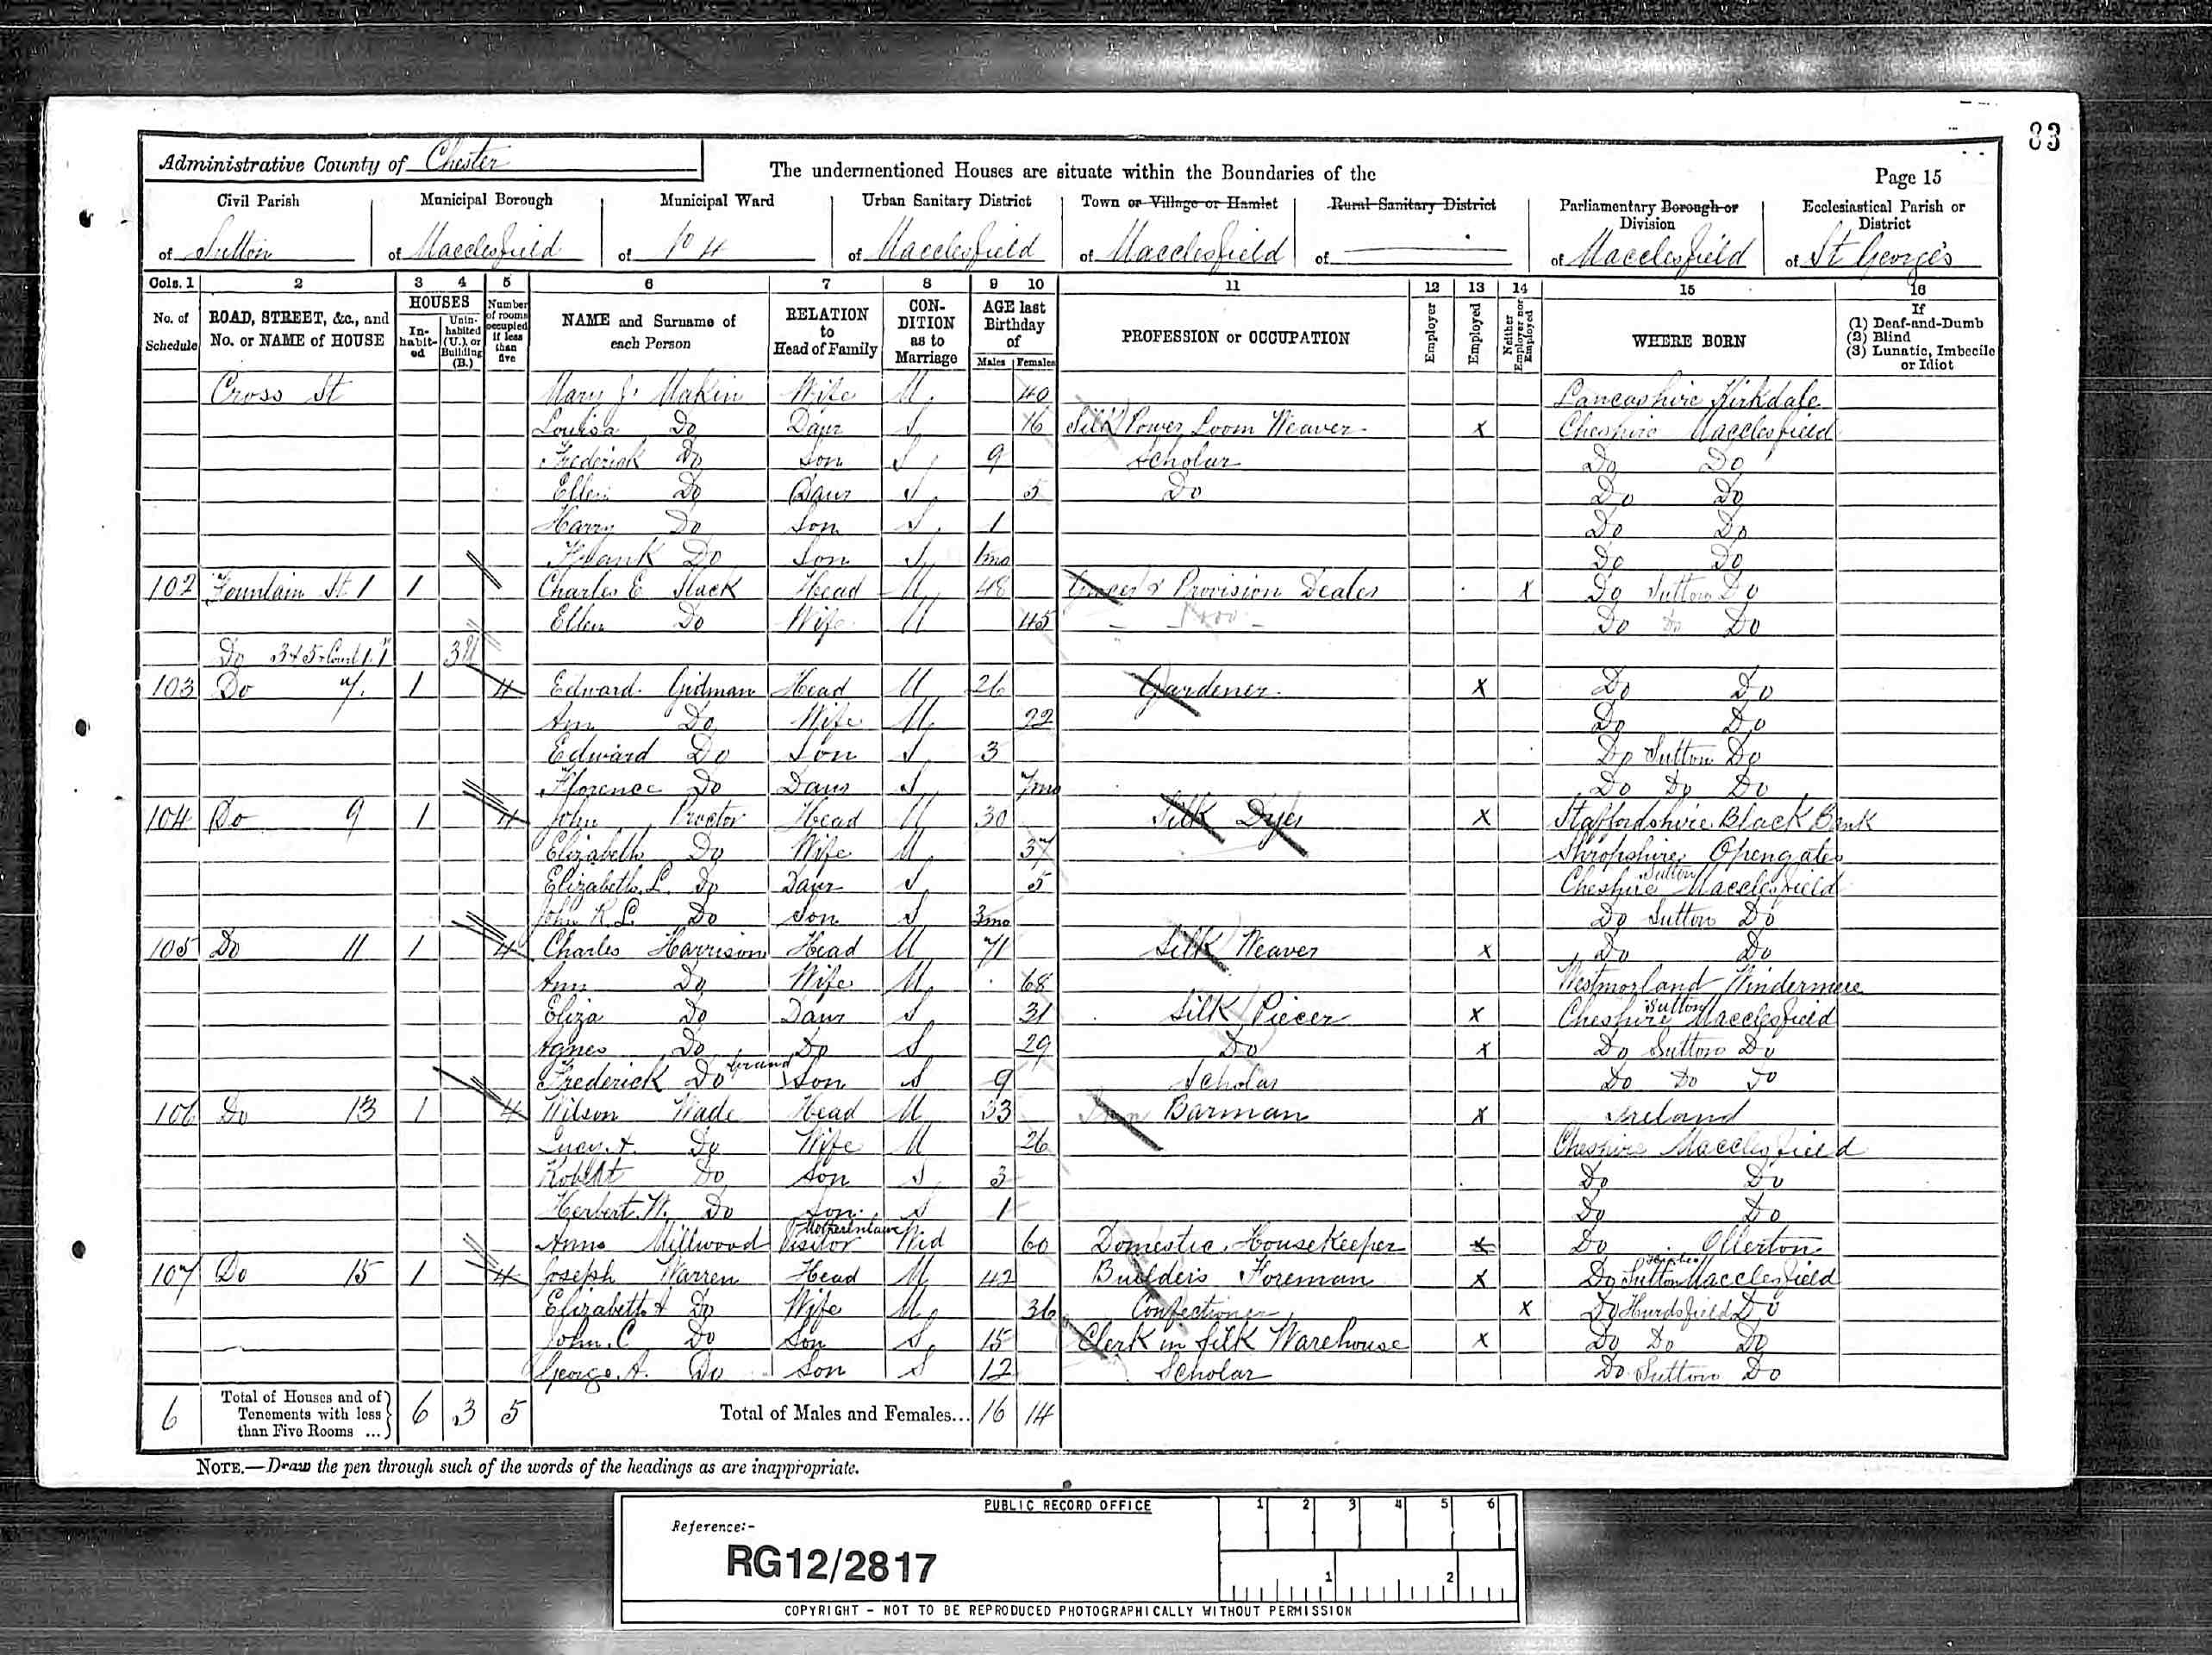 83
Administrative County of Chester
The undermentioned Houses are situate within the Boundaries of the
Page 15
Civil Parish of Sutton
Municipal Borough of Macclesfield
Municipal Ward of No 4
Urban Sanitary District of Macclesfield
Town or Village or Hamlet of Macclesfield
Rural Sanitary District of
Parliamentary Borough or Division of Macclesfield
Ecclesiastical Parish or District of St George's
Cols. 1 2 3 4 5 6 7 8 9 10 11 12 13 14 15 16
No. of Schedule
ROAD, STREET, &c., and No. or NAME of HOUSE
HOUSES
In-habit-ed
Unin-habited (U.), or Building (B.)
Number of rooms occupied if less than five
NAME and Surname of each Person
RELATION to Head of Family
CON-DITION as to Marriage
AGE last Birthday of
Males Females
PROFESSION or OCCUPATION
Employer
Employed
Neither Employer nor Employed
WHERE BORN
If (1) Deaf-and-Dumb (2) Blind (3) Lunatic, Imbecile or Idiot
Cross St Mary J. Makin Wife M 40 Lancashire Kirkdale
Louisa Do Daur S 16 Silk Power Loom Weaver X Cheshire Macclesfield
Frederick Do Son S 9 Scholar Do Do
Ellen Do Daur S 5 Do Do Do
Harry Do Son S 1 Do Do
Frank Do Son S 1mo Do Do
102 Fountain St 1 1 Charles E Slack Head M 48 Grocer & Provision Dealer X Do Sutton Do
Ellen Do Wife M 45 Do Do Do
Do 3 4 5
103 Do 7 1 4 Edward Gidman Head M 26 Gardener X Do Do
Ann Do Wife M 22 Do Do
Edward Do Son S 3 Do Sutton Do
Florence Do Daur S 7mo Do Do Do
104 Do 9 1 4 John Proctor Head M 30 Silk Dyer X Staffordshire Black Bank
Elizabeth Do Wife M 37 Shropshire Opengates
Elizabeth L. Do Daur S 5 Cheshire Sutton Macclesfield
John R. L. Do Son S 3mo Do Sutton Do
105 Do 11 1 4 Charles Harrison Head M 71 Silk Weaver X Do Do
Ann Do Wife M 68 Westmorland Windermere
Eliza Do Daur S 31 Silk Piecer X Cheshire Sutton Macclesfield
Agnes Do Do S 29 Do X Do Sutton Do
Frederick Do Grand Son S 9 Scholar Do Do Do
106 Do 13 1 4 Wilson Wade Head M 33 Barman X Ireland
Lucy A. Do Wife M 26 Cheshire Macclesfield
Robert Do Son S 3 Do Do
Herbert W. Do Son S 1 Do Do
Anne Millwood Visitor Mother in law Wid 60 Domestic Housekeeper X Do Ollerton
107 Do 15 1 4 Joseph Warren Head M 42 Builders Foreman X Do Sutton Macclesfield
Elizabeth A Do Wife M 36 Confectioner X Do Hurdsfield Do
John C Do Son S 15 Clerk in Silk Warehouse X Do Do Do
George A. Do Son S 12 Scholar Do Sutton Do
6 Total of Houses and of Tenements with less than Five Rooms ... 6 3 5 Total of Males and Females... 16 14
NOTE.—Draw the pen through such of the words of the headings as are inappropriate.
PUBLIC RECORD OFFICE
1 2 3 4 5 6
Reference:-
RG12/2817
1 2
COPYRIGHT - NOT TO BE REPRODUCED PHOTOGRAPHICALLY WITHOUT PERMISSION